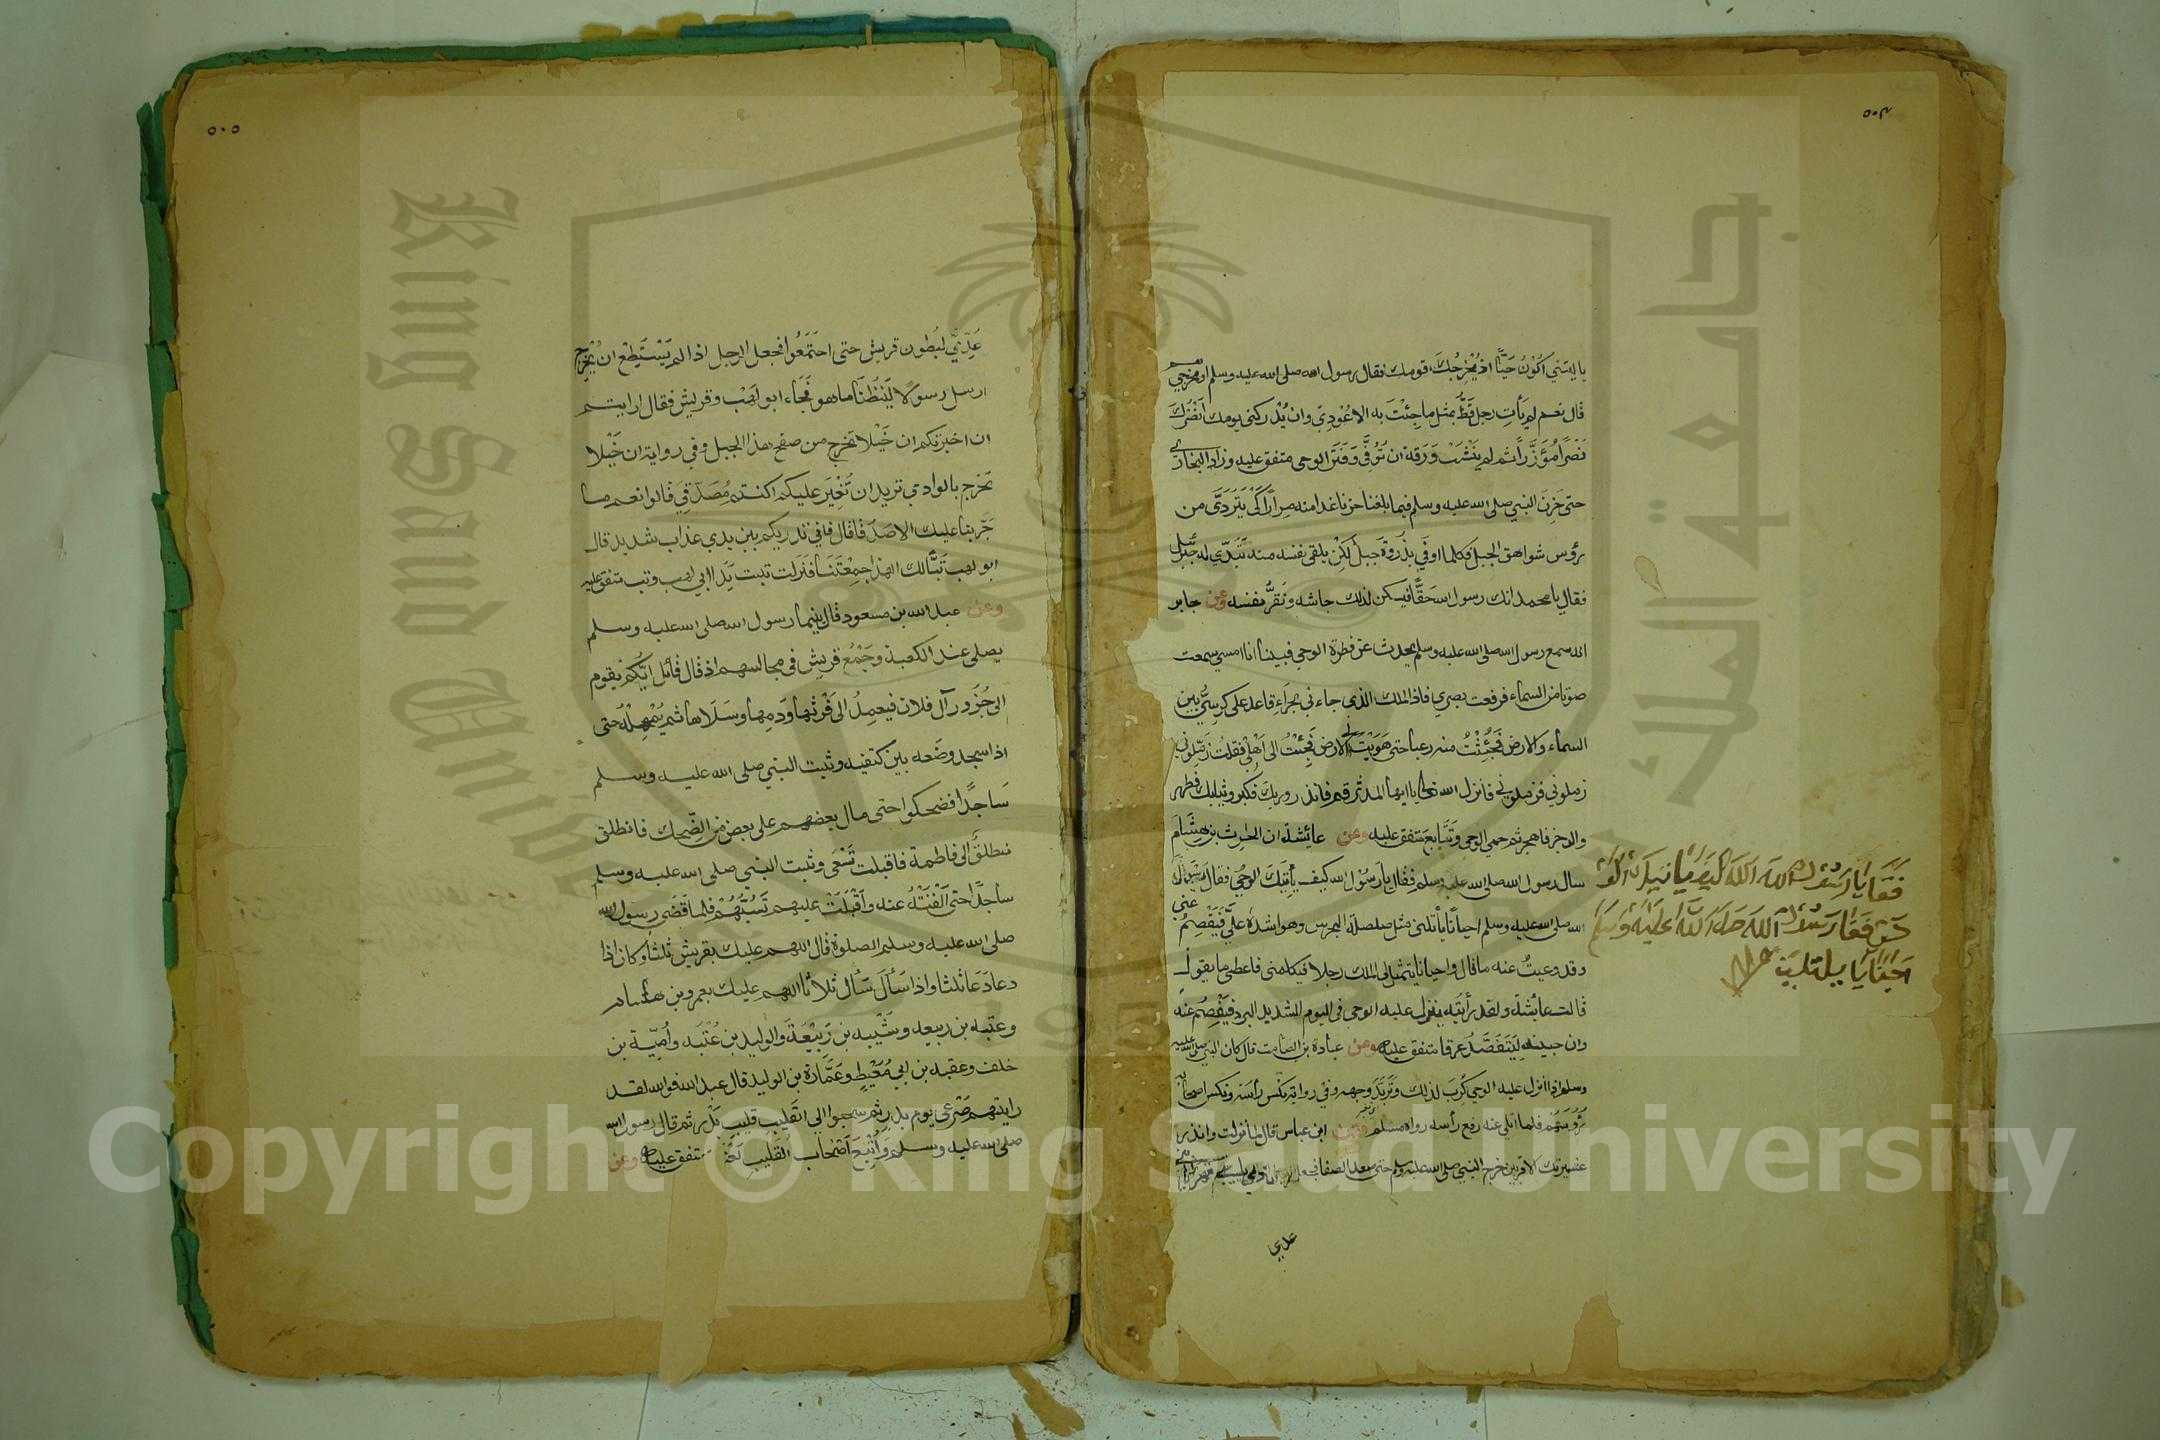 ٥٠٤
يا ليتني اكُوْنُ حَيًّا اذ يُخْرِجُكَ قومك فقال رسول الله صلى الله عليه وسلم او مخرجيّ هم
قال نعم لم يأتِ رجل قَطُّ بمثل ما جِئْتَ به الا عُوْدِيَ وان يُدْركنى يومك انْصُرْكَ
نَصْرًا مُؤَزَّرًا ثم لم يَنْشَبْ وَرَقة ان تُوُفِّيَ وَفَتَرَ الوحى متفق عليه وزاد البخارى
حتى حَزِنَ النبي صلى الله عليه وسلم فيما بلغنا حزنا غدا منه مِرارًا كَيْ يَتَرَدَّى من
رؤس شواهق الجبل فكلما اوفَى بذُرْوَة جبل لكى يلقى نفسه منه تَبَدّى له جبرئيل
فقال يا محمد انك رسول الله حقًّا فيسكن لذلك جاشه وتَقِرُّ نفسه وعن جابر
انه سمع رسول الله صلى الله عليه وسلم يحدث عن فطرة الوحي فبينا انا امسي سمعت
صوتا من السماء فرفعت بصري فاذا الملك الذي جاءني بحراءٍ قاعد على كرسيٍّ بين
السماء والارض فَجُئِثْتُ منه رعبا حتى هَوَيْتُ الى الارض فَجِئْتُ الى اَهْلِى فقلتُ زَمِّلونى
زملونى فزملونى فانزل الله تعالى يا ايها المدثر قم فانذر وربك فكبر وثيابك فطهر
والرجز فاهجر ثم حمي الوحي وَتَتَابعَ متفق عليه وعن عائشة ان الحرث بن هشام
سال رسول الله صلى الله عليه وسلم فقال يا رسُوْل الله كيف ياتيك الوحيُ فقال رسول
الله صلى الله عليه وسلم احيانًا يأتينى مثل صلصلة الجرس وهو اشدهُ عليَّ فَيَفْصِمُ عني
وقد وعيتُ عنه ما قال واحيانا يتمثل لى الملك رجلا فيكلمنى فاعى ما يقول
قالت عائشة ولقد رأيته ينزل عليه الوحى فى اليوم الشديد البرد فيَفْصِمُ عنه
وان جبينه لَيَتَفَصَّدُ عرقا متفق عليه وعن عبادة بن الصامت قال كان النبي صلى الله عليه
وسلم اذا انزل عليه الوحي كُرِبَ لذلك وَتَرَبَّدَ وجهه وفي رواية نكس رأسَه ونكس اصحابه
رُؤُسَهُم فلما اتلى عنه رفع رأسه رواه مسلم وعن ابن عباس قال لما نزلت وانذر
عشيرتك الاقربين خرج النبي صلى الله عليه وسلم حتى صعد الصفا فجعل ينادى يا بني فهر يا بني
عدي
فقال يا رسول الله
فقال رسول الله صلى الله عليه وسلم
احيانا ياتيني
٥٠٥
عَدِيٍّ لبُطُون قريش حتى اجتَمَعُوا فجعل الرجل اذا لم يَسْتَطِعْ ان يَخْرُج
ارسل رسولًا لِيَنْظُرَ ما هو فجَاء ابو لهَب وقريش فقال ارايتم
ان اخبرتكم ان خَيْلا تخرج من صفح هذا الجبل وفي رواية ان خَيْلا
تخرج بالوادي تريد ان تُغِيْرَ عليكم اكنتم مُصَدِّقِيَّ قالوا نعم ما
جَرَّبنا عليك الا صدقا قال فانى نذير لكم بين يدي عذاب شديد قال
ابو لهب تَبًّا لك الهذا جمعْتَنَا فنزلت تبت يَدَا ابي لهب وتب متفق عليه
وعن عبد الله بن مسعود قال بينما رسول الله صلى الله عليه وسلم
يصلى عند الكعبة وجَمْعُ قريش فى مجالسهم اذ قال قائل ايُّكم يقوم
الى جَزُور آل فلان فيعمِدُ الى فَرْثها وَدمِها وسَلَاها ثم يُمْهِلُهُ حتى
اذا سجد وضَعه بين كتفيه وثبت النبي صلى الله عليه وسلم
سَاجدًا فضحكوا حتى مال بعضهم على بعض من الضِّحك فانطلق
منطلقٌ الى فاطمة فاقبلت تَسْعَى وثبت النبي صلى الله عليه وسلم
ساجدًا حتى اَلْقَتْهُ عنه واَقْبَلَتْ عليهم تَسُبُّهُمْ فلما قَضَى رسول الله
صلى الله عليه وسلم الصلوة قال اللهم عليك بقريش ثلثا وكان اذا
دعا دَعا ثلثا واذا سَأَلَ سَأَل ثلاثا اللهم عليك بعمرو بن هشام
وعتبه بن ربيعه وشَيْبه بن رَبِيْعَةَ والوليد بن عُتْبَه واُمَيّة بن
خلف وعقبه بن ابي مُعَيْطٍ وعَمَّارة بن الوليد قال عبد الله فوالله لقد
رايتهم صَرْعى يوم بدرٍ ثم سحبوا الى القَلِيبِ قليب بَدْر ثم قال رسول الله
صلى الله عليه وسلم وَاُتْبِعَ اَصْحَابُ القَلِيْبِ لَعْنَةً متفق عليه وعن
جامعة الملك سعود
King Saud University
Copyright © King Saud University